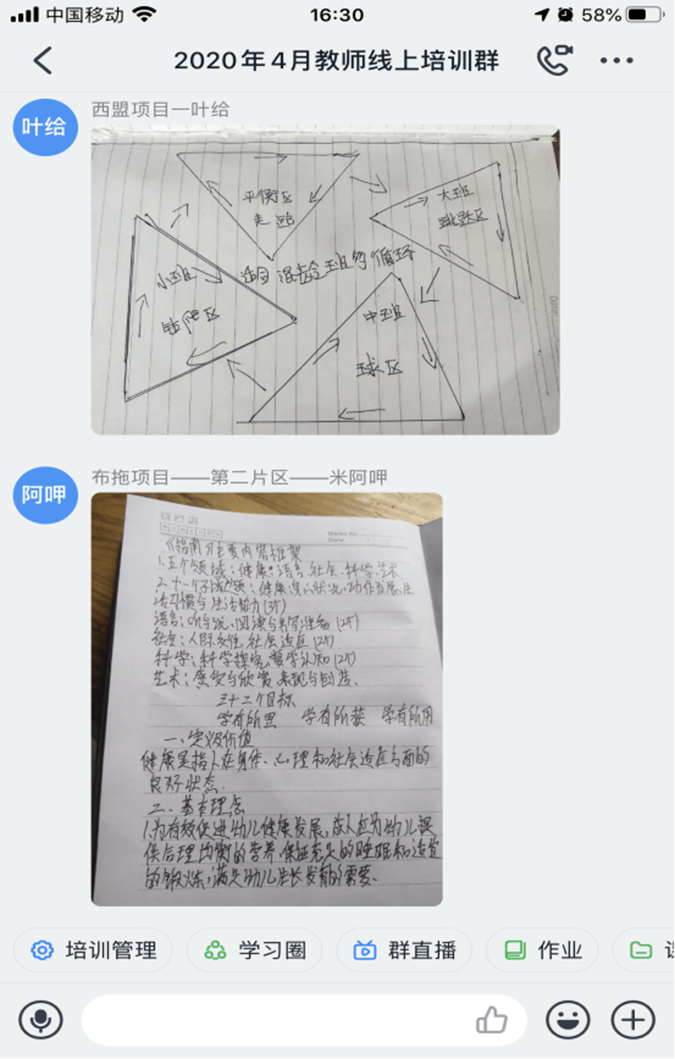 中国移动
16:30
58%
2020年4月教师线上培训群
叶给
西盟项目—叶给
平衡区
走跑
大班
跳跃区
适用混龄班的循环
小班
钻爬区
中班
球区
阿呷
布拖项目——第二片区——米阿呷
Memo No.
Date
《指南》主要内容框架
1.五个领域:健康.语言.社会.科学.艺术
2.十一个子领域:健康:身心状况,动作发展,生
活习惯与生活能力(3个)
语言:听与说,阅读与书写准备(2个)
社会:人际交往,社会适应(2个)
科学:科学探究,数学认知(2个)
艺术:感受与欣赏 表现与创造.
三十二个目标
学有所思 学有所获 学有所用
一、定义及价值
健康是指人在身体、心理和社会适应方面的
良好状态.
二、基本理念
1.为有效促进幼儿健康发展,成人应为幼儿提
供合理均衡的营养,保证充足的睡眠和适宜
的锻炼,满足幼儿生长发育的需要.
培训管理
学习圈
群直播
作业